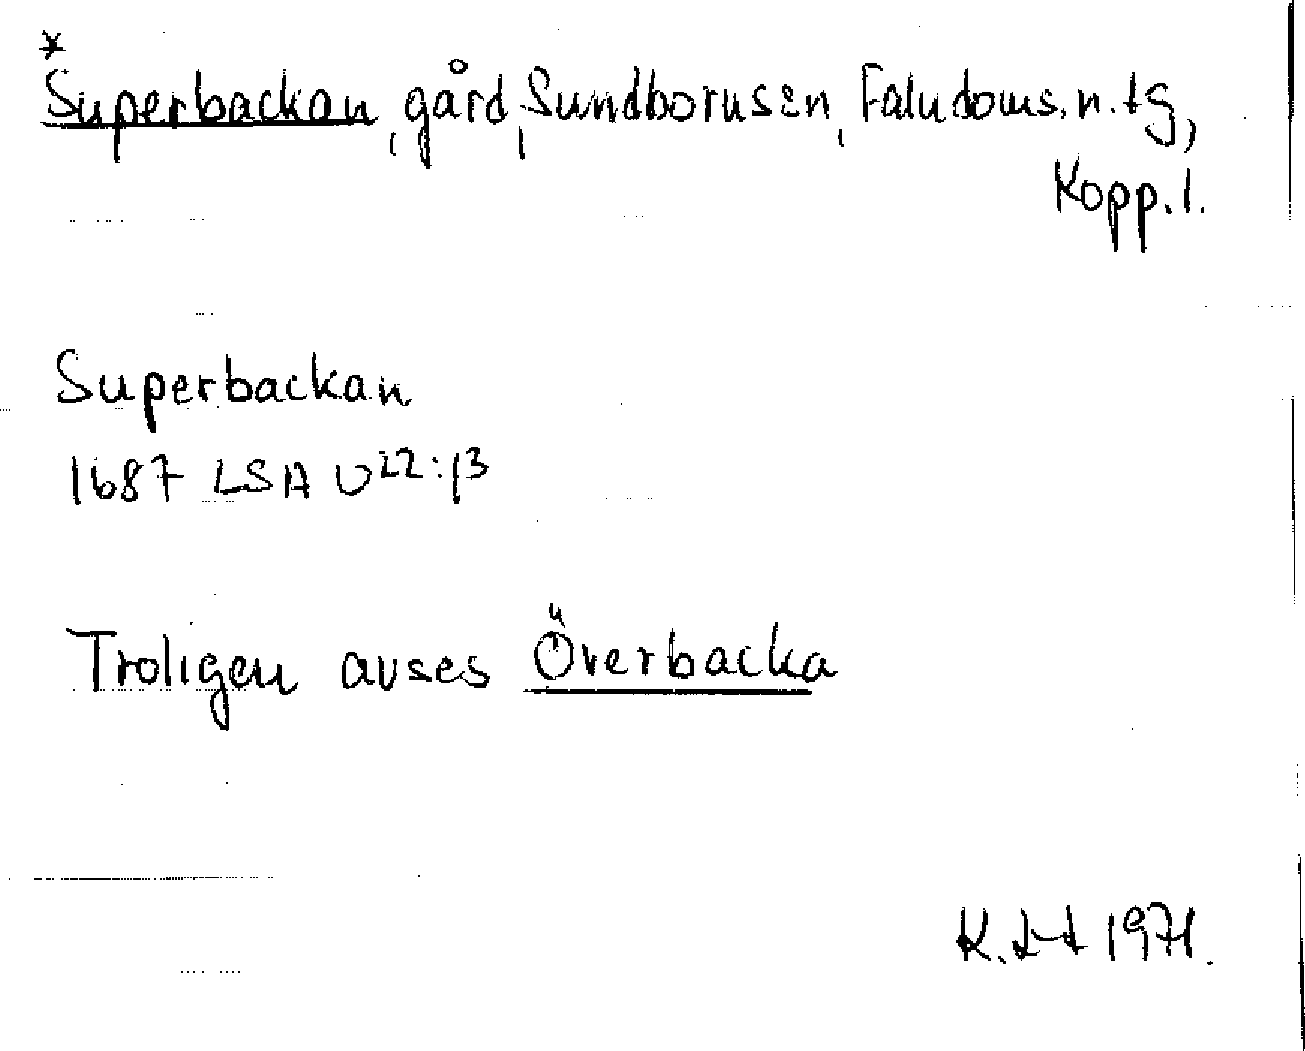 *
Superbackan, gård, Sundbornsən, Faludoms. n. tg,
Kopp. l.
Superbackan
1687 LSA U22:13
Troligen avses Överbacka
K. 1971.